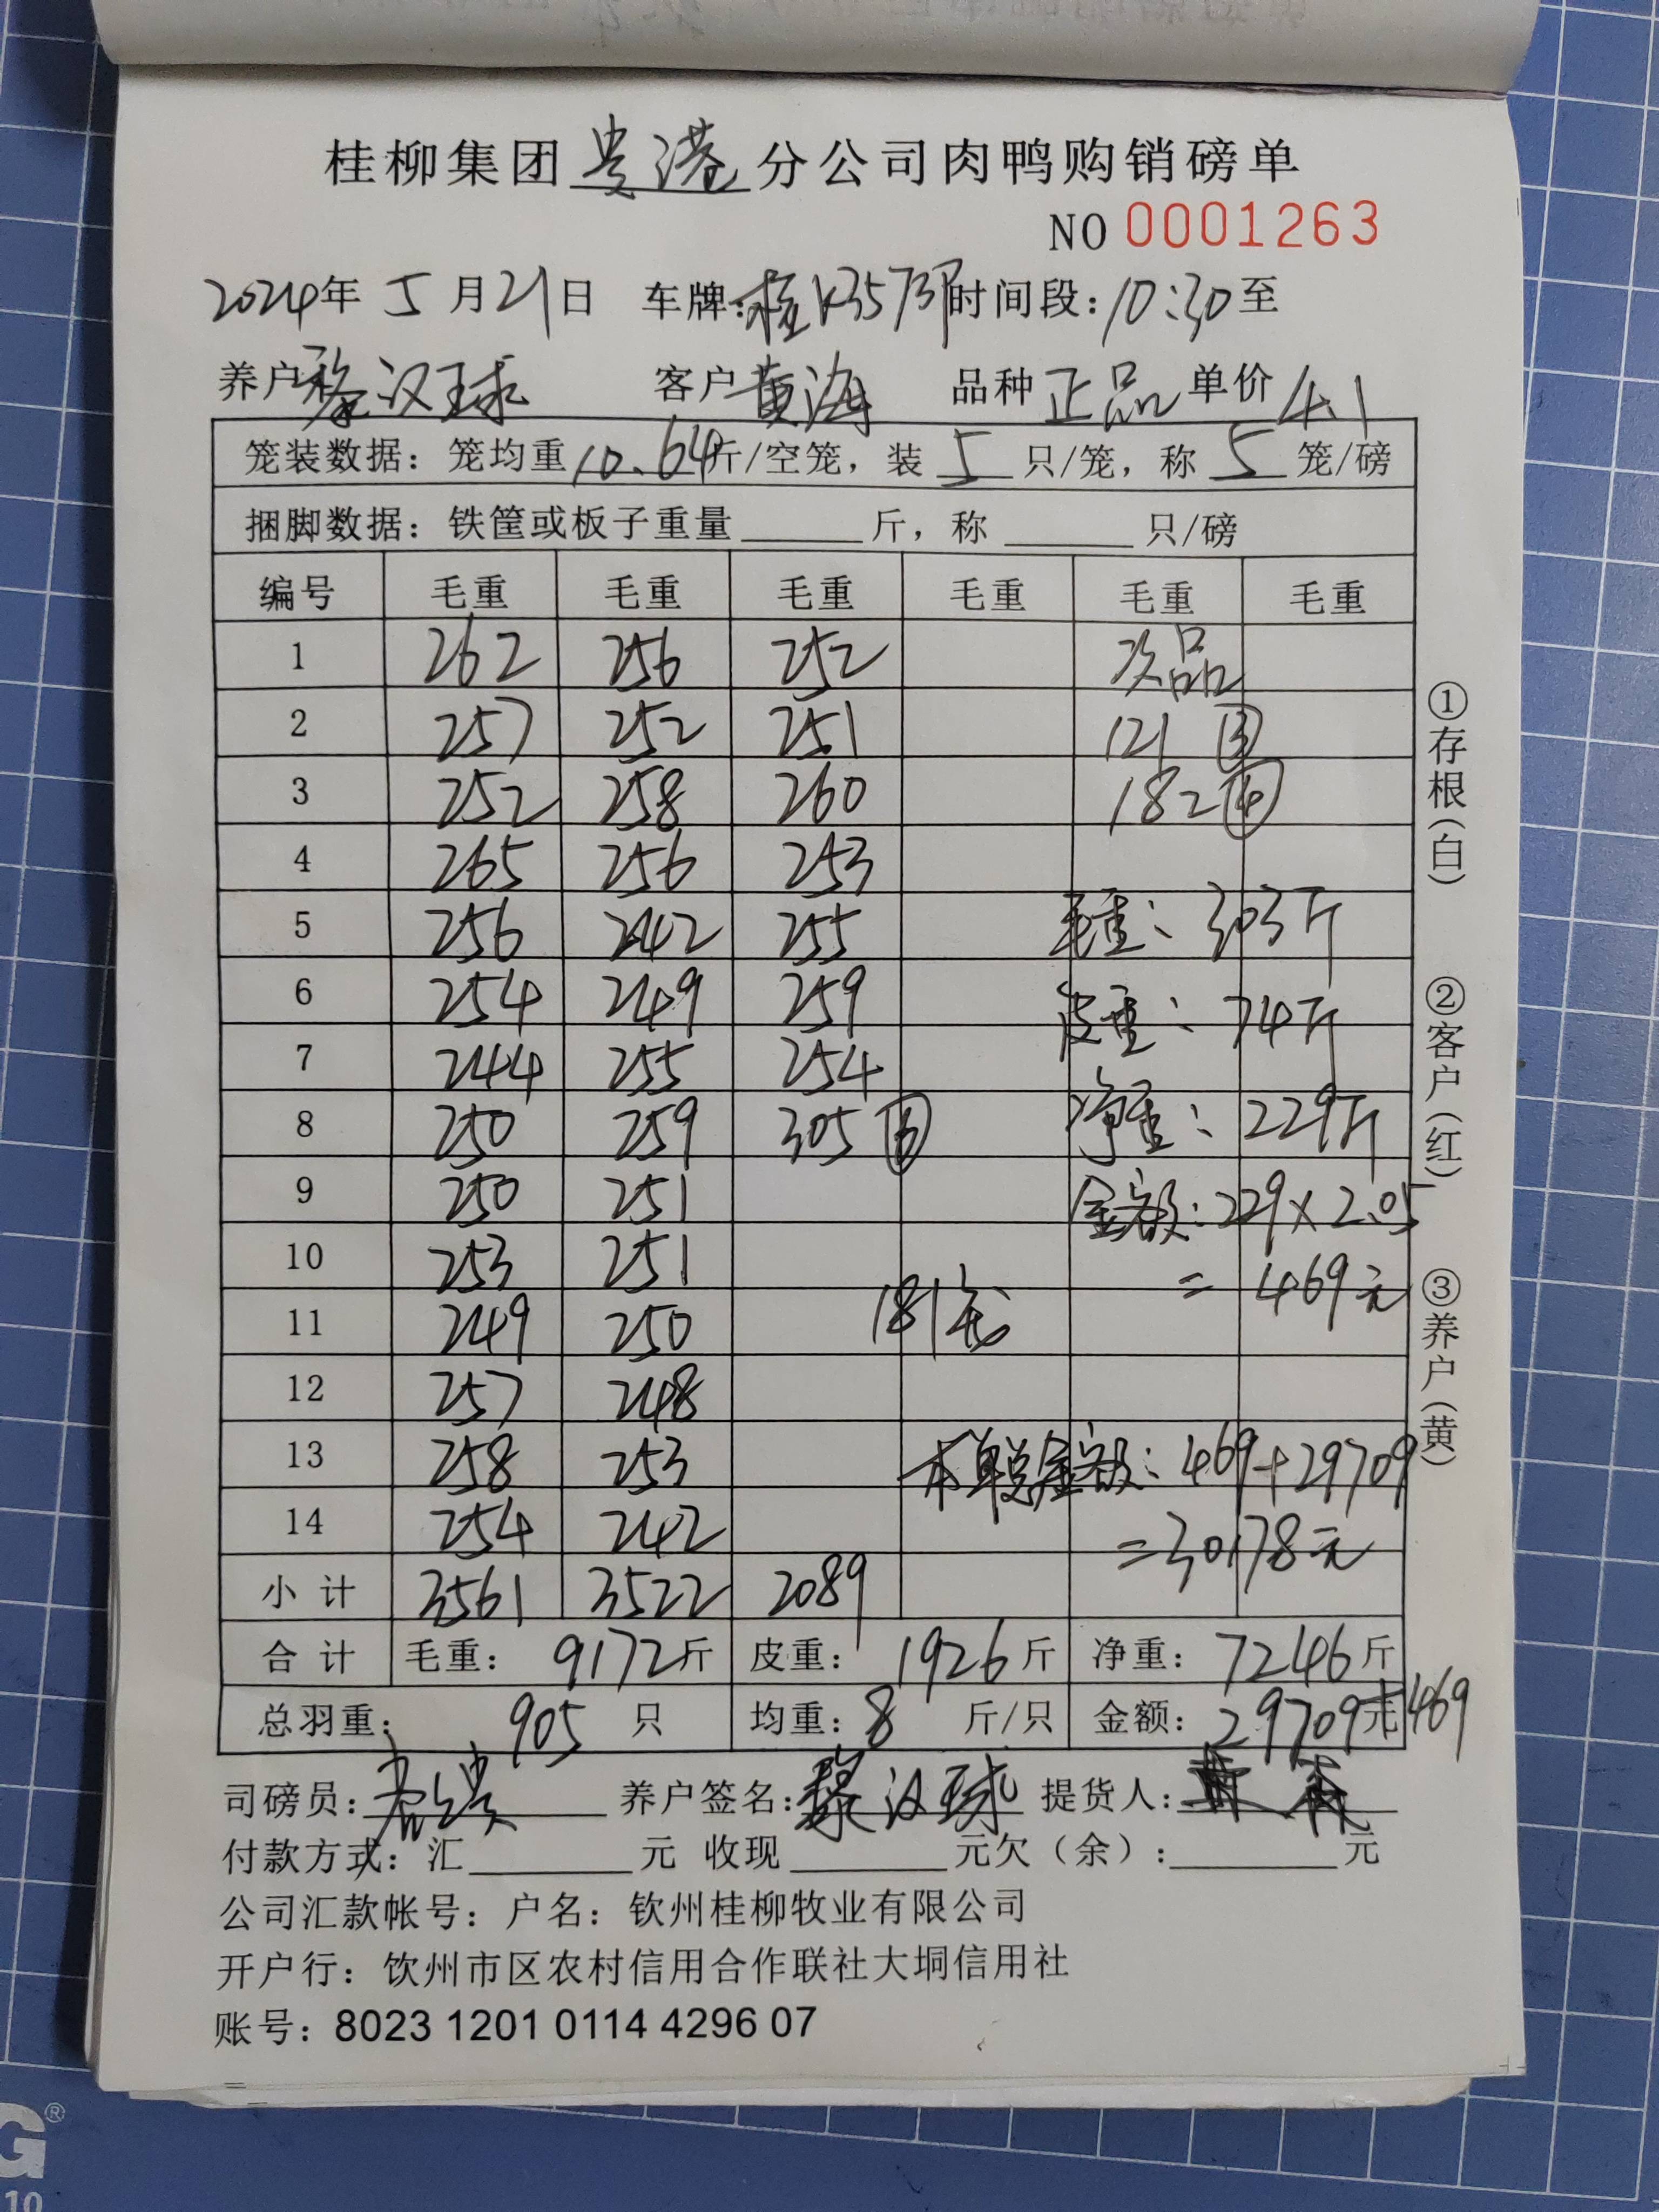 桂柳集团贵港分公司肉鸭购销磅单
NO 0001263
2024年 5 月 21 日 车牌: 时间段: 10:30 至
养户 黎汉球 客户 黄海 品种 正品 单价 4.1
笼装数据: 笼均重 10.64 斤/空笼, 装 5 只/笼, 称 5 笼/磅
捆脚数据: 铁筐或板子重量 ______ 斤, 称 ______ 只/磅
编号 毛重 毛重 毛重 毛重 毛重 毛重
1 262 256 252 次品
2 257 252 251 121 ③
3 252 258 260 182 ④
4 265 256 253
5 256 242 255 毛重: 303斤
6 254 249 259 皮重: 74斤
7 244 255 254
8 250 259 305 ⑥ 净重: 229斤
9 250 251 金额: 229×2.05
10 253 251 = 469元
11 249 250 181笼
12 257 248
13 258 253 本单总金额: 469+29709
14 254 242 =30178元
小 计 3561 3522 2089
合 计 毛重: 9172 斤 皮重: 1926 斤 净重: 7246 斤
总羽重: 905 只 均重: 8 斤/只 金额: 29709 元+469
司磅员: 养户签名: 黎汉球 提货人:
付款方式: 汇 ______ 元 收现 ______ 元欠(余): ______ 元
公司汇款帐号: 户名: 钦州桂柳牧业有限公司
开户行: 钦州市区农村信用合作联社大垌信用社
账号: 8023 1201 0114 4296 07
①存根(白)
②客户(红)
③养户(黄)
G®
10